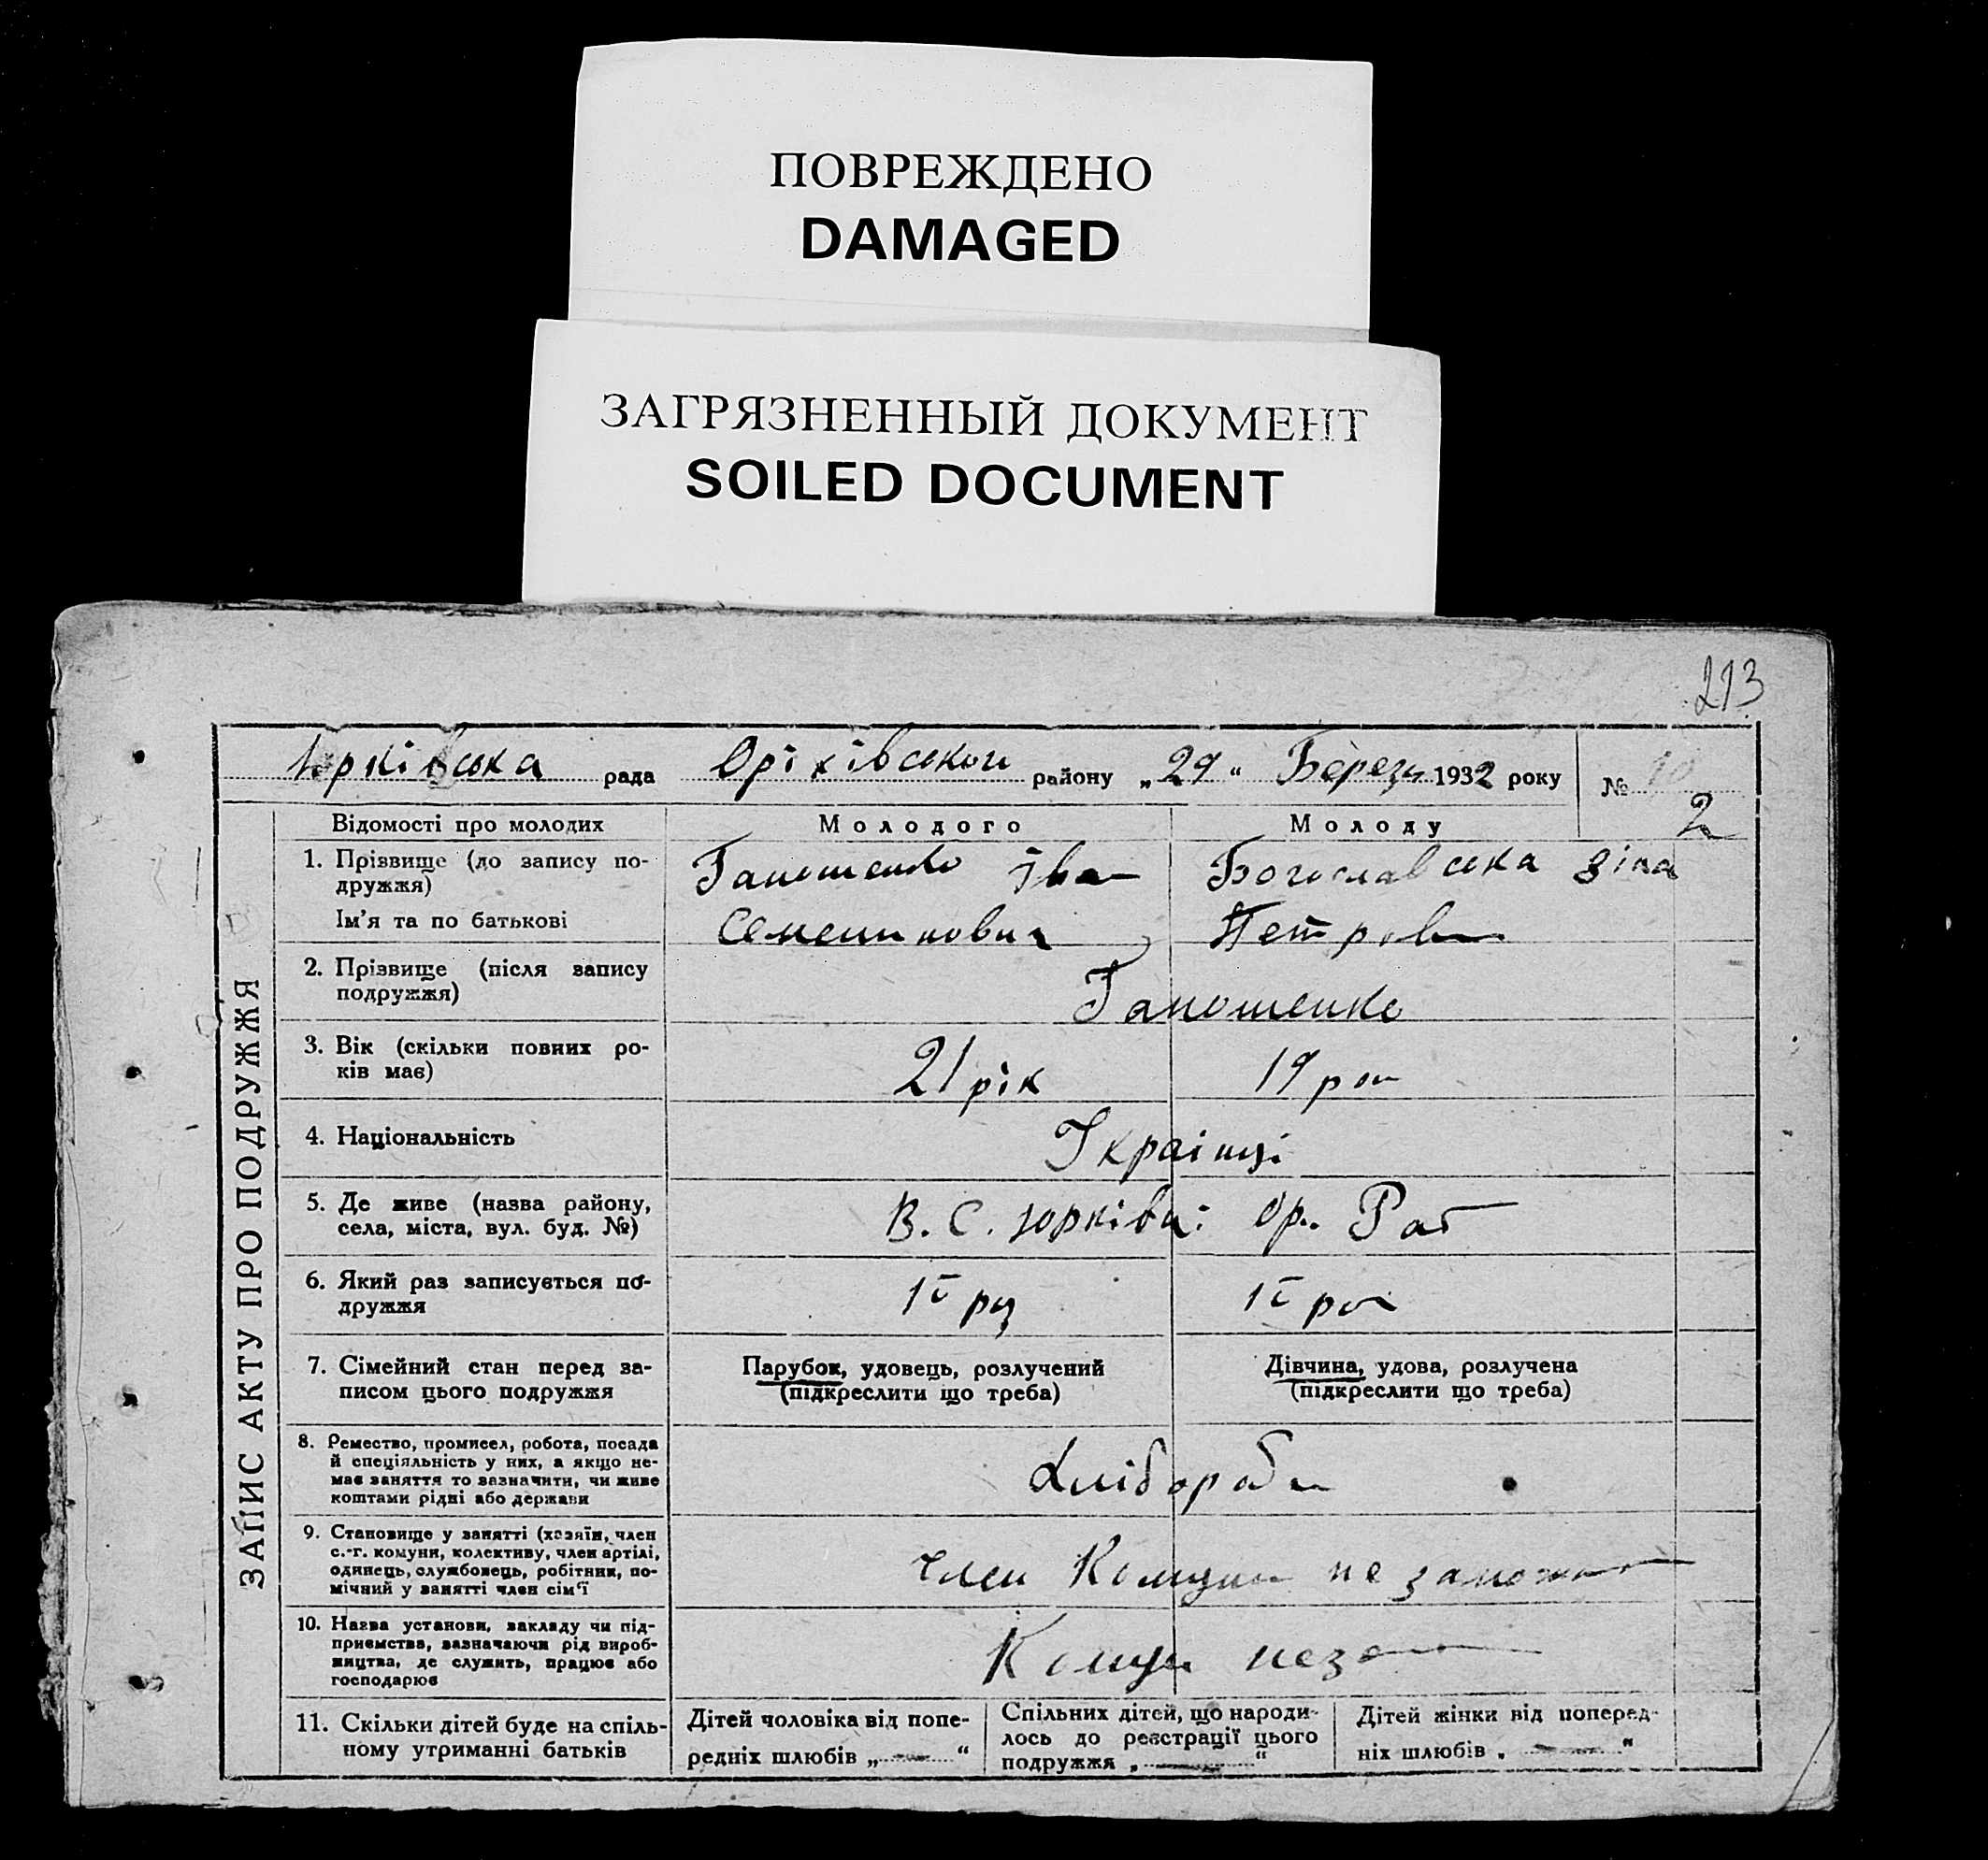 ПОВРЕЖДЕНО
DAMAGED
ЗАГРЯЗНЕННЫЙ ДОКУМЕНТ
SOILED DOCUMENT
213
Юрківська рада Оріхівського району „29“ Березн 1932 року № 10
2
ЗАПИС АКТУ ПРО ПОДРУЖЖЯ
Відомості про молодих
Молодого
Молоду
1. Прізвище (до запису по-
дружжя)
Ім'я та по батькові
Ганошенко Іван
Семенинович
Богославська Зіна
Петровн
2. Прізвище (після запису
подружжя)
Ганошенко
3. Вік (скільки повних ро-
ків має)
21 рік
19 рок
4. Національність
Українці
5. Де живе (назва району,
села, міста, вул. буд. №)
В. С. Юрківка: Ор. Ра
6. Який раз записується по-
дружжя
1й раз
1й раз
7. Сімейний стан перед за-
писом цього подружжя
Парубок, удовець, розлучений
(підкреслити що треба)
Дівчина, удова, розлучена
(підкреслити що треба)
8. Ремество, промисел, робота, посада
й спеціяльність у них, а якщо не-
має заняття то зазначити, чи живе
коштами рідні або держави
Хлібороби
9. Становище у занятті (хазяїн, член
с.-г. комуни, колективу, член артілі,
одинець, службовець, робітник, по-
мічний у занятті член сім'ї
член Комуни незамож
10. Назва установи, закладу чи під-
приємства, зазначаючи рід вироб-
ництва, де служить, працює або
господарює
Комун неза
11. Скільки дітей буде на спіль-
ному утриманні батьків
Дітей чоловіка від попе-
редніх шлюбів „ — “
Спільних дітей, що народи-
лось до реєстрації цього
подружжя „ — “
Дітей жінки від поперед-
ніх шлюбів „ — “